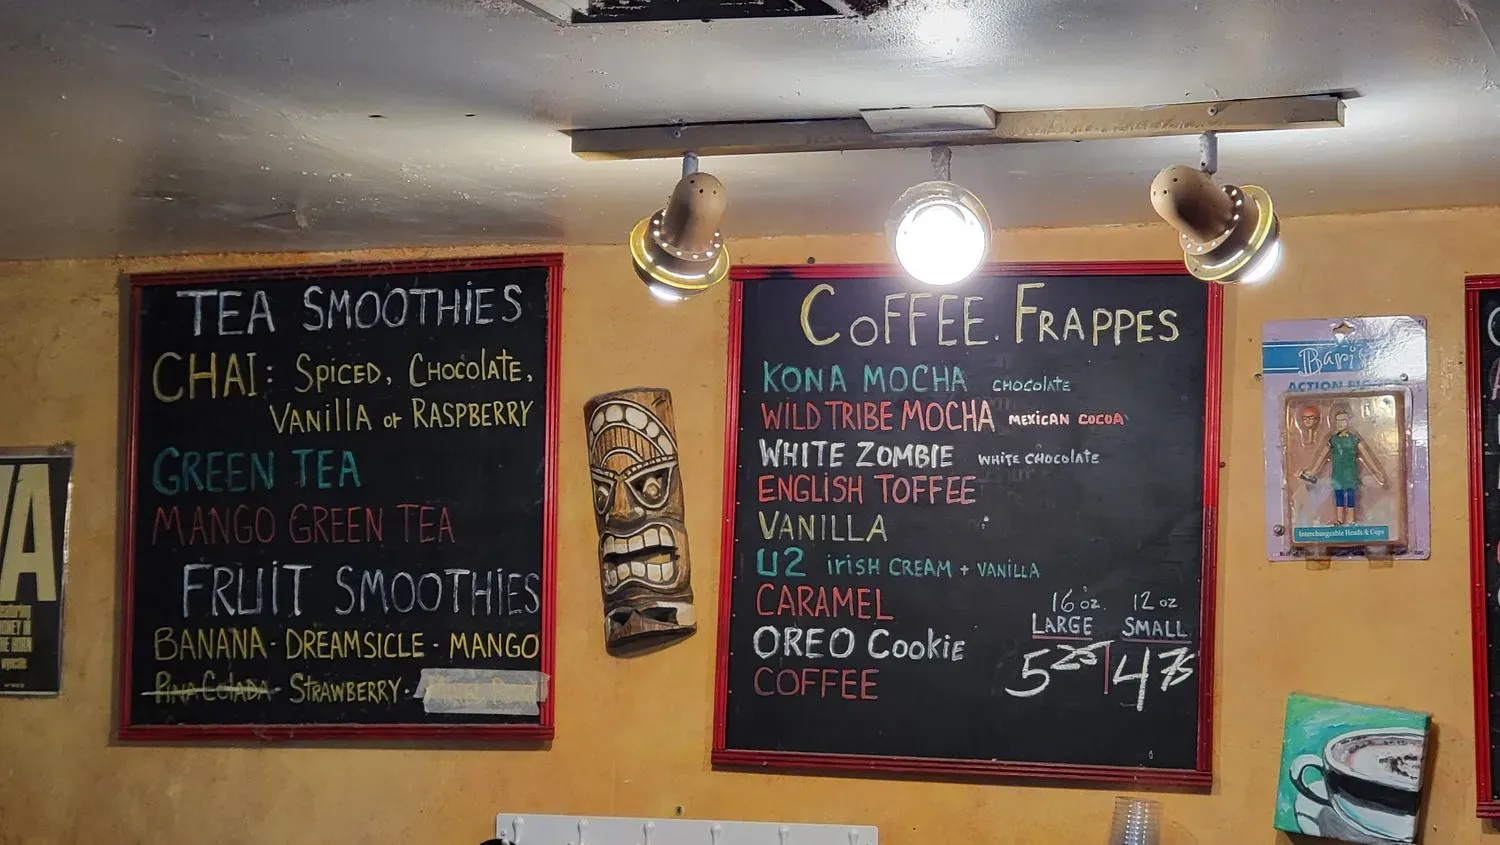 TEA SMOOTHiES
CHAI: SPiCED, CHOCOLATE,
VANiLLA or RASPBERRY
GREEN TEA
MANGO GREEN TEA
FRUiT SMOOTHiES
BANANA · DREAMSICLE · MANGO
PiNA COLADA · STRAWBERRY ·
COFFEE FRAPPES
KONA MOCHA CHOCOLATE
WILD TRIBE MOCHA MEXICAN COCOA
WHITE ZOMBIE WHITE CHOCOLATE
ENGLISH TOFFEE
VANILLA
U2 iRiSH CREAM + VANILLA
CARAMEL
OREO Cookie
COFFEE
16 oz 12 oz
LARGE SMALL
5 25 4 75
ACTION
Interchangeable Heads & Cups